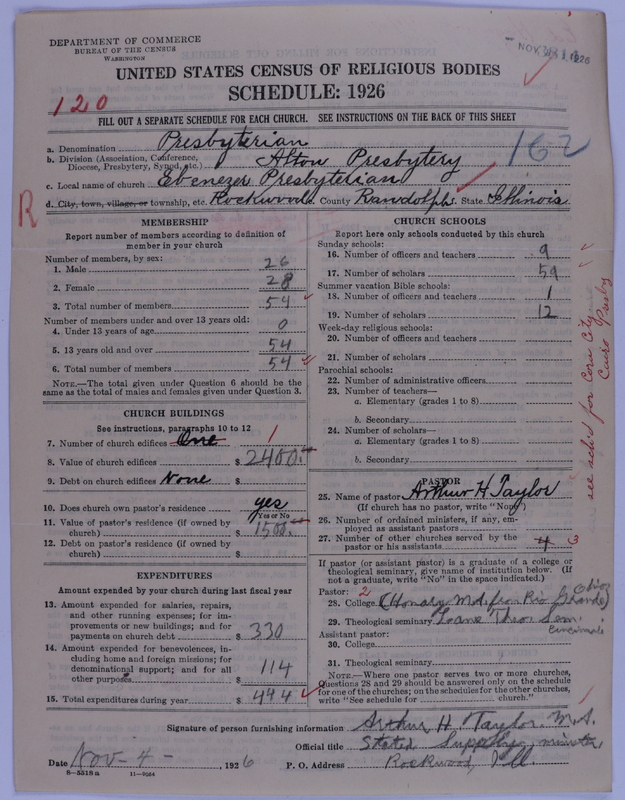 DEPARTMENT OF COMMERCE
BUREAU OF THE CENSUS
WASHINGTON
UNITED STATES CENSUS OF RELIGIOUS BODIES
SCHEDULE: 1926
120
FILL OUT A SEPARATE SCHEDULE FOR EACH CHURCH. SEE INSTRUCTIONS ON THE BACK OF THIS SHEET
162
a. Denomination Presbyterian
b. Division (Association, Conference, Diocese, Presbytery, Synod, etc.) Alton Presbytery
c. Local name of church Ebenezer Presbyterian
d. City, town, village, or township, etc. Rockwood County Randolph State Illinois
R
MEMBERSHIP
Report number of members according to definition of
member in your church
Number of members, by sex:
1. Male 26
2. Female 28
3. Total number of members 54
Number of members under and over 13 years old:
4. Under 13 years of age 0
5. 13 years old and over 54
6. Total number of members 54
NOTE.—The total given under Question 6 should be
the same as the total of males and females given under Question 3.
CHURCH BUILDINGS
See instructions, paragraphs 10 to 12
7. Number of church edifices One 1
8. Value of church edifices $ 2400.
9. Debt on church edifices None $
10. Does church own pastor's residence yes
Yes or No
11. Value of pastor's residence (if owned by
church) $ 1500.
12. Debt on pastor's residence (if owned by
church) $
EXPENDITURES
Amount expended by your church during last fiscal year
13. Amount expended for salaries, repairs,
and other running expenses; for im-
provements or new buildings; and for
payments on church debt $ 330
14. Amount expended for benevolences, in-
cluding home and foreign missions; for
denominational support; and for all
other purposes $ 114
15. Total expenditures during year $ 444
CHURCH SCHOOLS
Report here only schools conducted by this church
Sunday schools:
16. Number of officers and teachers 9
17. Number of scholars 59
Summer vacation Bible schools:
18. Number of officers and teachers 1
19. Number of scholars 12
Week-day religious schools:
20. Number of officers and teachers
21. Number of scholars
Parochial schools:
22. Number of administrative officers
23. Number of teachers—
a. Elementary (grades 1 to 8)
b. Secondary
24. Number of scholars—
a. Elementary (grades 1 to 8)
b. Secondary $
see sch'd for Cora City
Cairo Presby
PASTOR
25. Name of pastor Arthur H Taylor
(If church has no pastor, write "None")
26. Number of ordained ministers, if any, em-
ployed as assistant pastors
27. Number of other churches served by the
pastor or his assistants 4 3
If pastor (or assistant pastor) is a graduate of a college or
theological seminary, give name of institution below. (If
not a graduate, write "No" in the space indicated.)
Pastor: 2
28. College (Honary M.A. from Rio Grande) Ohio
29. Theological seminary Lane Theo Sem. Cincinnati
Assistant pastor:
30. College
31. Theological seminary
NOTE.—Where one pastor serves two or more churches,
Questions 28 and 29 should be answered only on the schedule
for one of the churches; on the schedules for the other churches,
write "See schedule for church."
Signature of person furnishing information Arthur H. Taylor. M.A.
Official title Stated Supply minister
Date Nov-4-, 1926 P. O. Address Rockwood, Ill.
8-5518a 11-9264